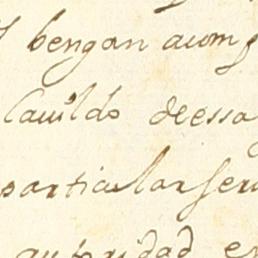 bengan acom
Cavildo deessa
particular ser
autoridad e